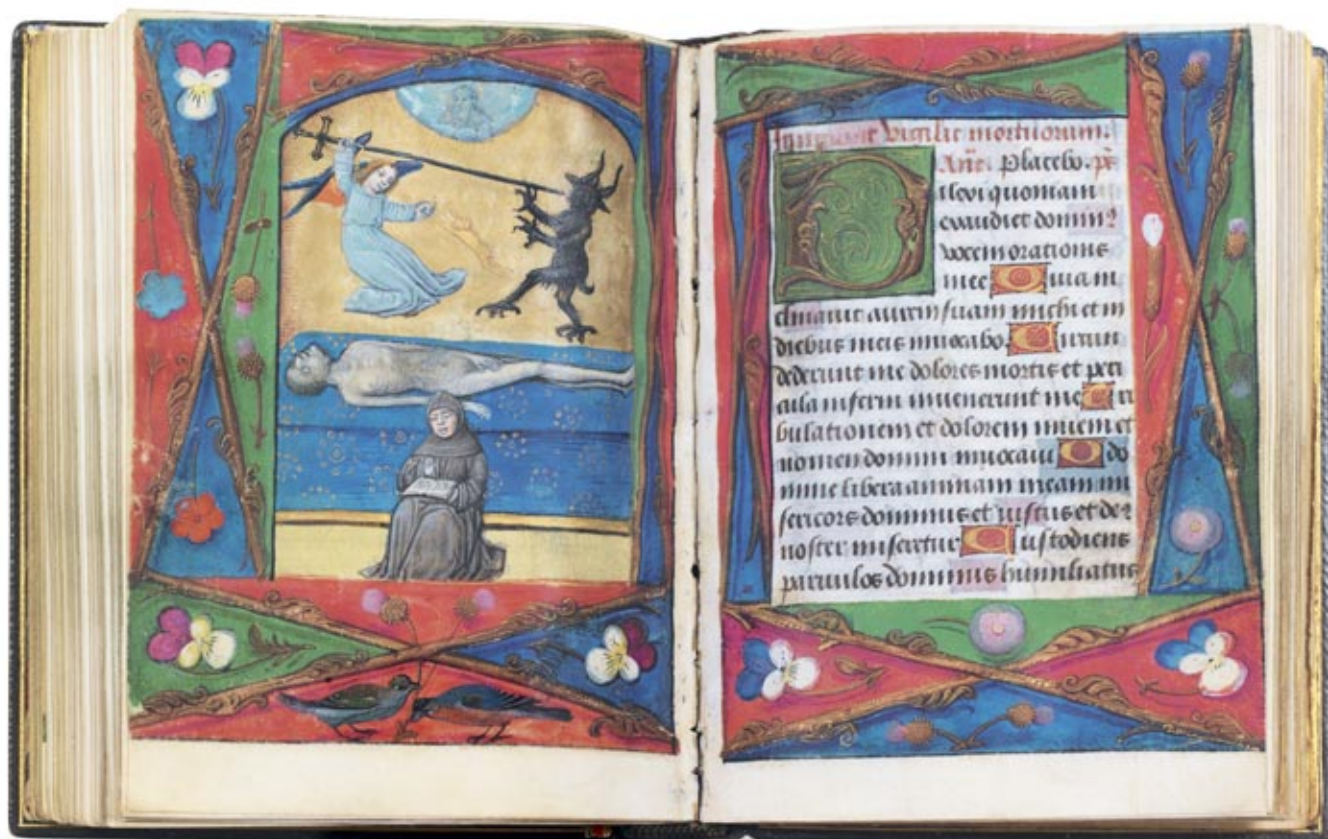 Incipiunt Vigilie mortuorum.
Añe. Placebo. p̄s
Dilexi quoniam
exaudiet domin⁹
vocem orationis
mee Quia in
clinavit aurem suam michi et in
diebus meis invocabo. Circun
dederunt me dolores mortis et peri
cula inferni invenerunt me Tri
bulationem et dolorem inveni et
nomen domini invocavi O do
mine libera animam meam mi
sericors dominus et iustus et de⁹
noster miseretur Custodiens
parvulos dominus humiliatus